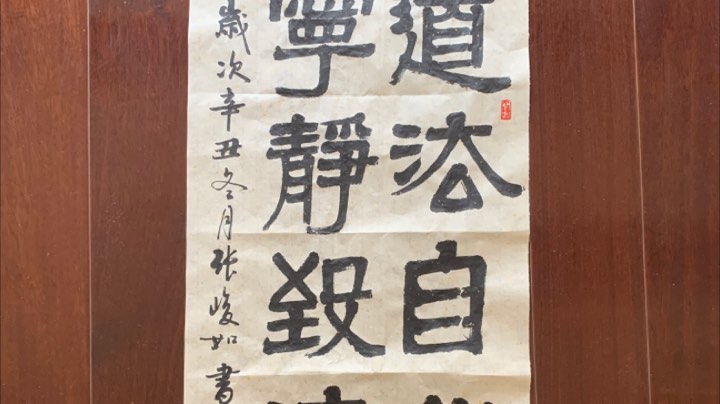 道法自
寧靜致
歲次辛丑冬月張峻如書